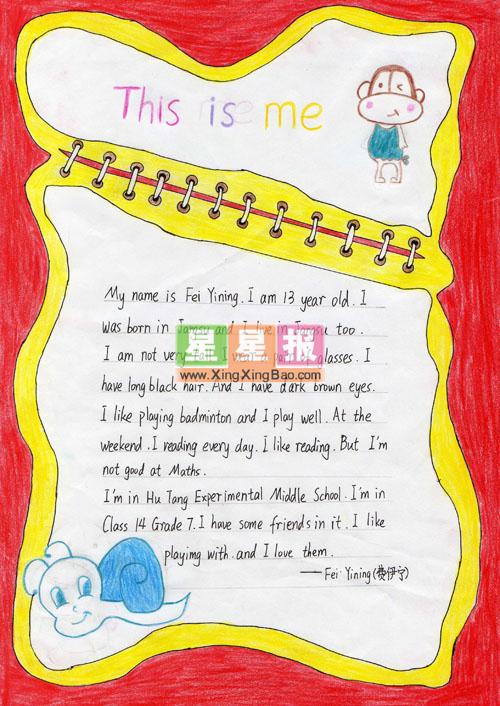 This is me
My name is Fei Yining. I am 13 year old. I
was born in Jiangsu and I live in Jiangsu too.
星星报
I am not very tall. I wear a pair of glasses. I
www.XingXingBao.com
have long black hair. And I have dark brown eyes.
I like playing badminton and I play well. At the
weekend. I reading every day. I like reading. But I'm
not good at Maths.
I'm in Hu Tang Experimental Middle School. I'm in
Class 14 Grade 7. I have some friends in it. I like
playing with. and I love them.
——Fei Yining(费伊宁)